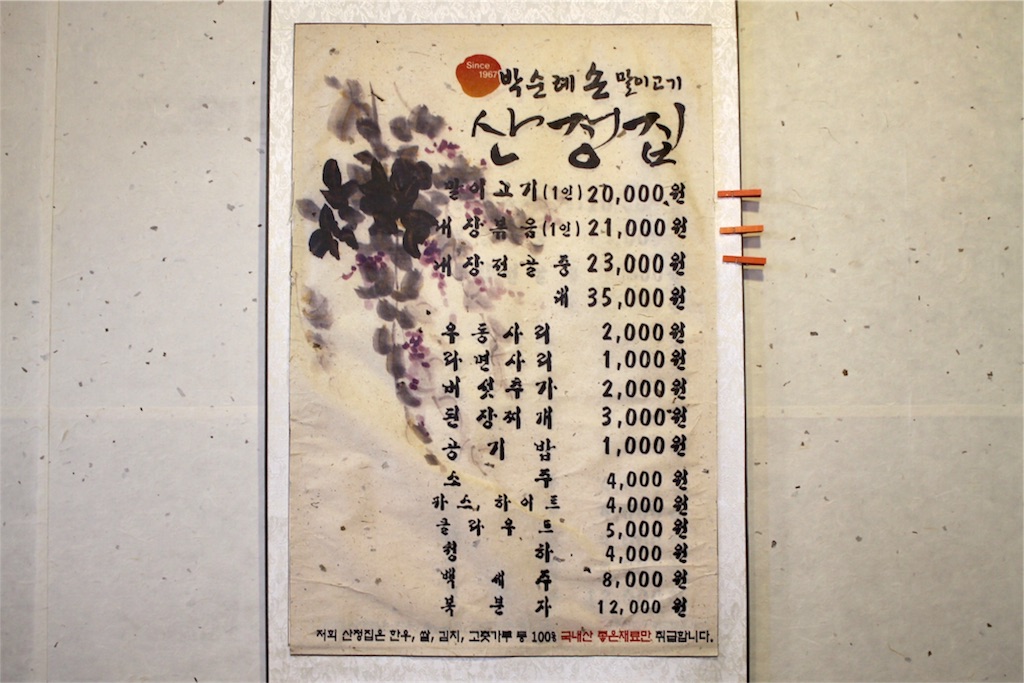 Since
1967
박순례 손 말이고기
산정집
말이고기(1인) 20,000원
내장볶음(1인) 21,000원
내장전골 중 23,000원
대 35,000원
우동사리 2,000원
라면사리 1,000원
버섯추가 2,000원
된장찌개 3,000원
공기밥 1,000원
소주 4,000원
카스, 하이트 4,000원
클라우드 5,000원
청하 4,000원
백세주 8,000원
복분자 12,000원
저희 산정집은 한우, 쌀, 김치, 고춧가루 등 100% 국내산 좋은재료만 취급합니다.